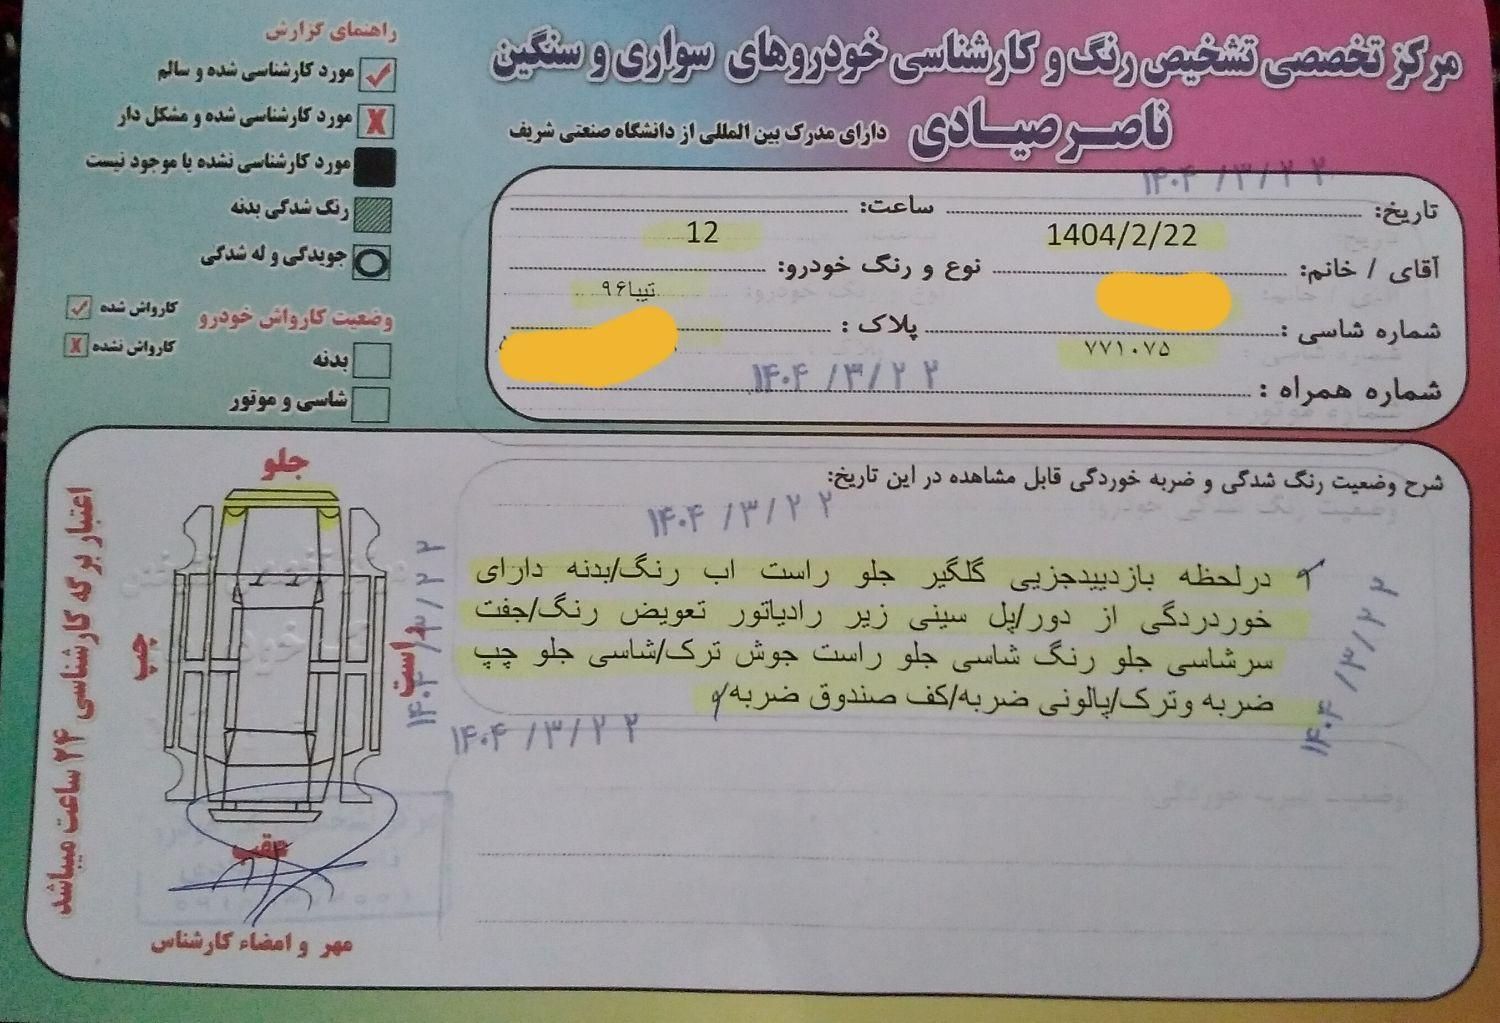 مرکز تخصصی تشخیص رنگ و کارشناسی خودروهای سواری و سنگین
ناصر صیادی دارای مدرک بین المللی از دانشگاه صنعتی شریف
۱۴۰۴/۳/۲۲
تاریخ: ساعت:
1404/2/22 12
آقای / خانم: نوع و رنگ خودرو:
تیبا۹۶
شماره شاسی : پلاک :
۷۷۱۰۷۵
۱۴۰۴/۳/۲۲
شماره همراه :
راهنمای گزارش
مورد کارشناسی شده و سالم
مورد کارشناسی شده و مشکل دار
مورد کارشناسی نشده یا موجود نیست
رنگ شدگی بدنه
جویدگی و له شدگی
وضعیت کارواش خودرو
کارواش شده
کارواش نشده
بدنه
شاسی و موتور
شرح وضعیت رنگ شدگی و ضربه خوردگی قابل مشاهده در این تاریخ:
۱۴۰۴/۳/۲۲
درلحظه بازدییدجزیی گلگیر جلو راست اب رنگ/بدنه دارای
خوردردگی از دور/پل سینی زیر رادیاتور تعویض رنگ/جفت
سرشاسی جلو رنگ شاسی جلو راست جوش ترک/شاسی جلو چپ
ضربه وترک/پالونی ضربه/کف صندوق ضربه/
۱۴۰۴/۳/۲۲
۱۴۰۴/۳/۲۲
۱۴۰۴/۳/۲۲
جلو
راست
چپ
عقب
اعتبار برگه کارشناسی ۲۴ ساعت میباشد
مهر و امضاء کارشناس